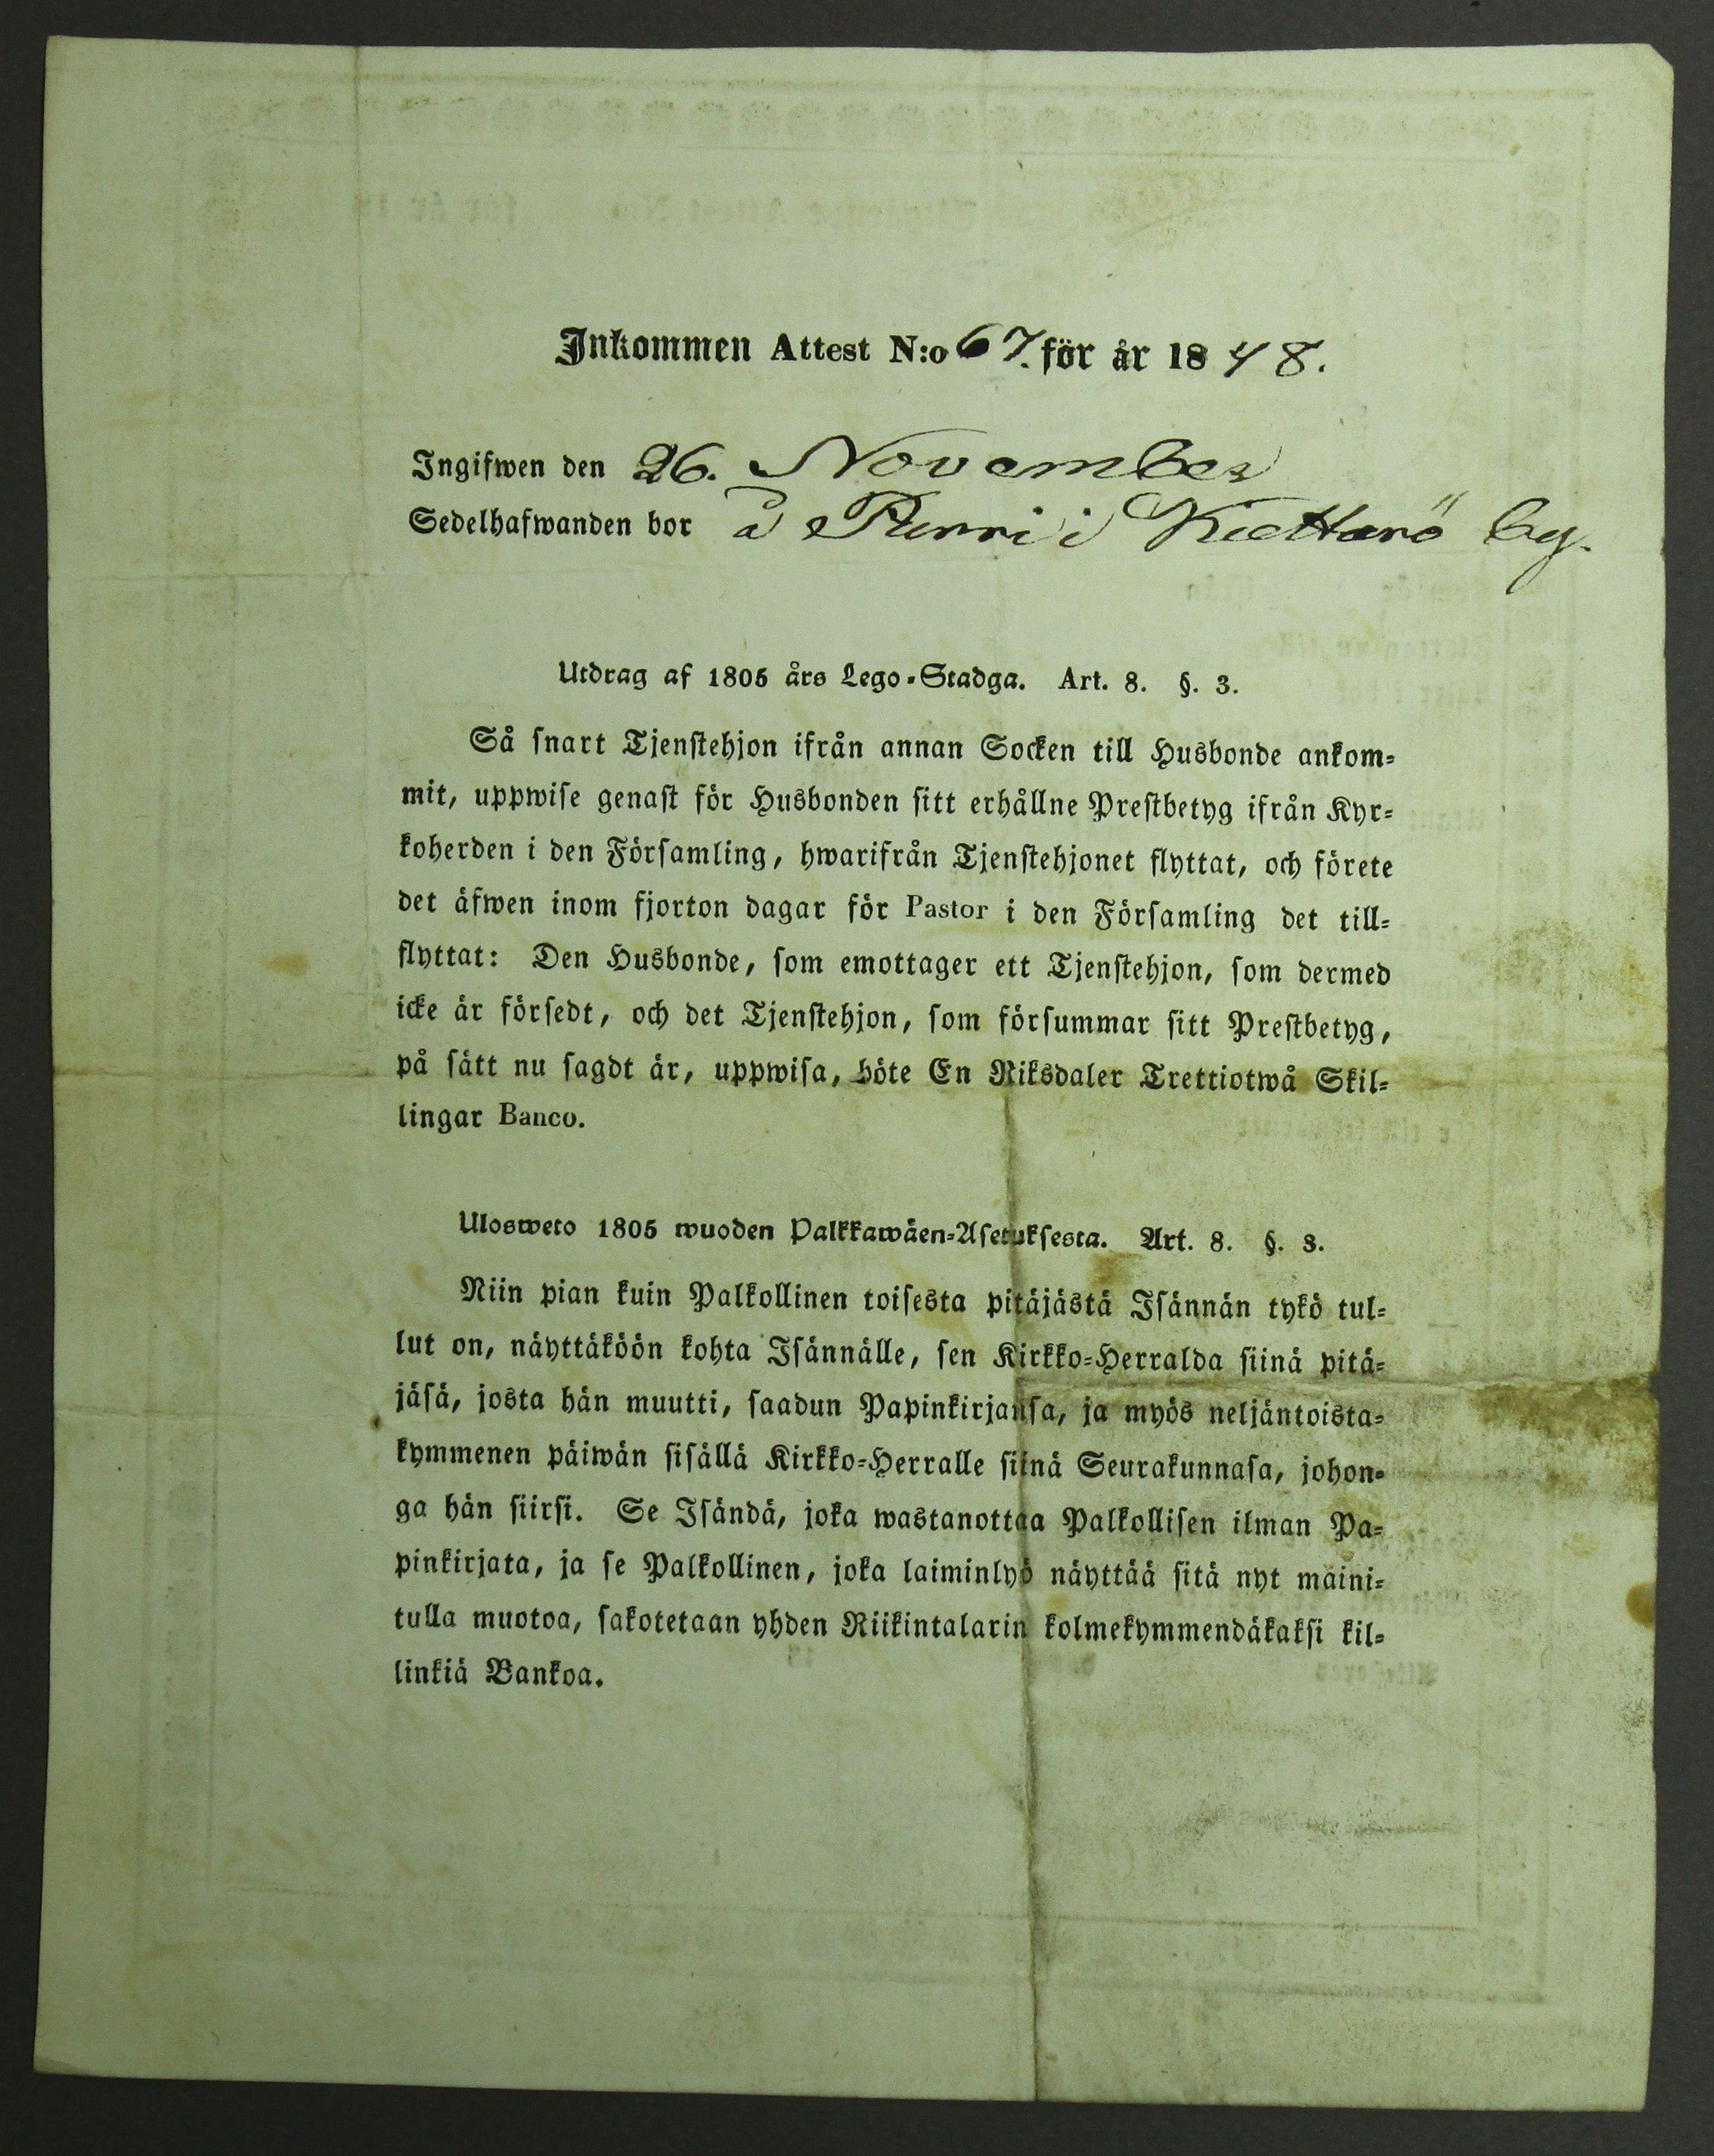 Inkommen Attest N:o 67. för år 1848.
Ingifwen den 26. November
Sedelhafwanden bor å Purri i Kiettarö by.
Utdrag af 1805 års Lego-Stadga. Art. 8. §. 3.
Så snart Tjenstehjon ifrån annan Socken till Husbonde ankom-
mit, uppwise genast för Husbonden sitt erhållne Prestbetyg ifrån Kyr-
koherden i den Församling, hwarifrån Tjenstehjonet flyttat, och förete
det äfwen inom fjorton dagar för Pastor i den Församling det till-
flyttat: Den Husbonde, som emottager ett Tjenstehjon, som dermed
icke är försedt, och det Tjenstehjon, som försummar sitt Prestbetyg,
på sätt nu sagdt är, uppwisa, böte En Riksdaler Trettiotwå Skil-
lingar Banco.
Ulosweto 1805 wuoden Palkkawäen-Asetuksesta. Art. 8. §. 3.
Niin pian kuin Palkollinen toisesta pitäjästä Isännän tykö tul-
lut on, näyttäköön kohta Isännälle, sen Kirkko-Herralda siinä pitä-
jäsä, josta hän muutti, saadun Papinkirjansa, ja myös neljäntoista-
kymmenen päiwän sisällä Kirkko-Herralle siinä Seurakunnasa, johon-
ga hän siirsi. Se Isändä, joka wastanottaa Palkollisen ilman Pa-
pinkirjata, ja se Palkollinen, joka laiminlyö näyttää sitä nyt maini-
tulla muotoa, sakotetaan yhden Riikintalarin kolmekymmendäkaksi kil-
linkiä Bankoa.